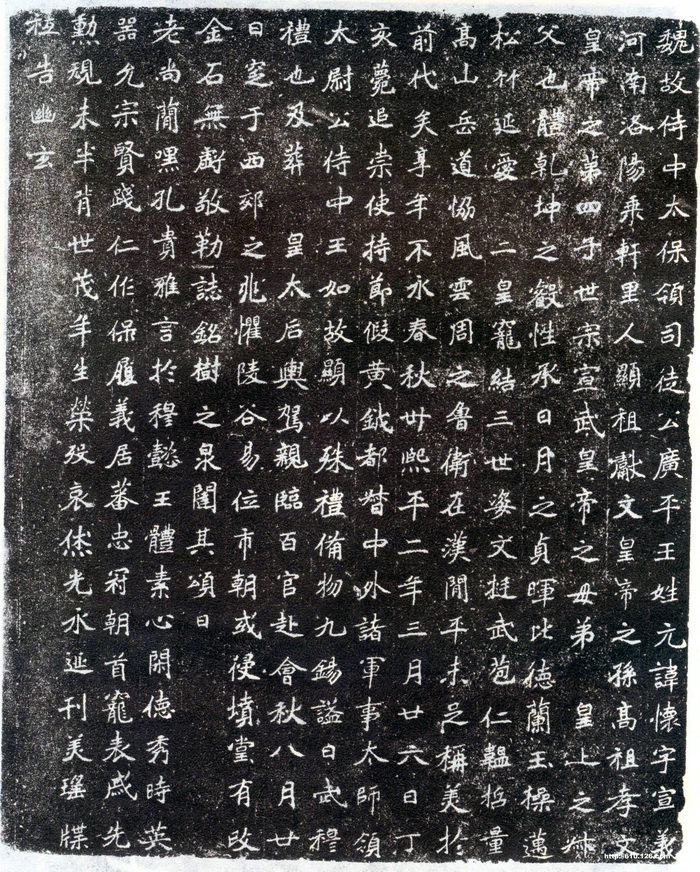 魏故侍中太保領司徒公廣平王姓元諱懷字宣義
河南洛陽乘軒里人顯祖獻文皇帝之孫高祖孝文
皇帝之第四子世宗宣武皇帝之母弟　皇上之叔
父也體乾坤之叡性承日月之貞暉比德蘭玉操邁
松竹延愛　二皇寵結三世姿文挺武苞仁韞哲量
高山岳道協風雲周之魯衛在漢閒平未足稱美於
前代矣享年不永春秋卅熙平二年三月廿六日丁
亥薨追崇使持節假黃鉞都督中外諸軍事太師領
太尉公侍中王如故顯以殊禮備物九錫謚曰武穆
禮也及葬　皇太后輿駕親臨百官赴會秋八月廿
日窆于西郊之兆懼陵谷易位市朝或侵墳堂有改
金石無虧敬勒誌銘樹之泉闥其頌曰
老尚簡嘿孔貴雅言於穆懿王體素心閑德秀時英
器允宗賢踐仁作保履義居蕃忠冠朝首寵表戚先
勳規未半背世茂年生榮歿哀休光永延刊美瑤牒
祗告幽玄